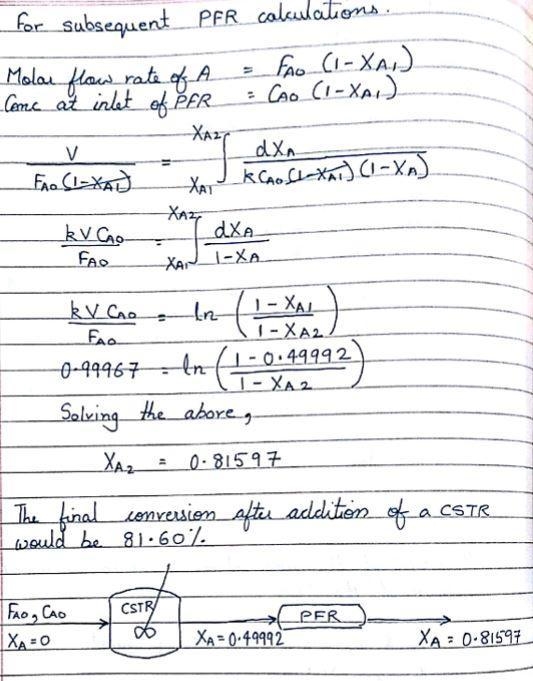 For subsequent PFR calculations.
Molar flow rate of A = FA0 (1-XA1)
Conc at inlet of PFR = CA0 (1-XA1)
V / FA0 (1-XA1) = ∫ XA1 XA2 dXA / k CA0 (1-XA1) (1-XA)
kV CA0 / FA0 = ∫ XA1 XA2 dXA / 1-XA
kV CA0 / FA0 = ln ( 1-XA1 / 1-XA2 )
0.99967 = ln ( 1-0.49992 / 1-XA2 )
Solving the above,
XA2 = 0.81597
The final conversion after addition of a CSTR
would be 81.60%.
FA0, CA0 CSTR PFR
XA=0 XA=0.49992 XA = 0.81597